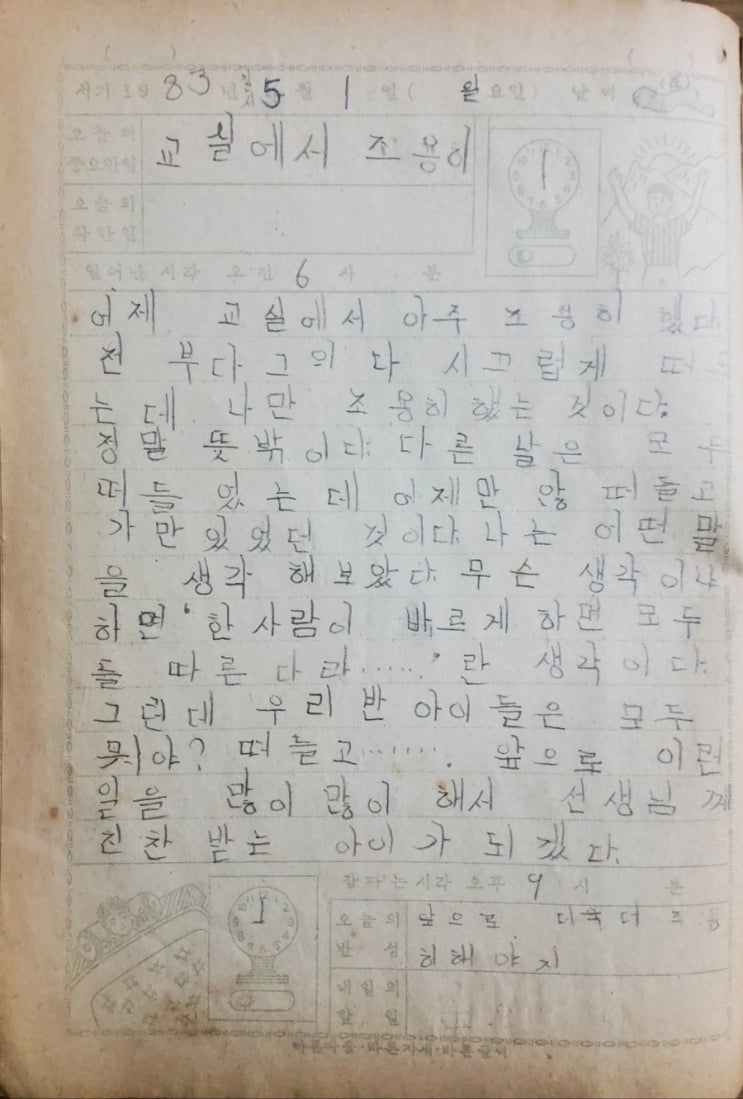 서기 19 83 년 5 월 1 일 ( 일 요일) 날씨
오늘의
중요한일
교실에서 조용히
오늘의
착한일
일어난 시각 오전 6 시 분
어제 교실에서 아주 조용히 했다.
전부다 그의 다 시끄럽게 떠드
는데 나만 조용히 했는 것이다.
정말 뜻밖이다. 다른 날은 모두
떠들 있는데 어제만 않 떠들고
가만 있었던 것이다. 나는 어떤 말
을 생각 해보았다. 무슨 생각이냐
하면 ‘한 사람이 바르게 하면 모두
들 따른다라……’란 생각이다.
그런데 우리 반 아이들은 모두
뭐야? 떠들고……. 앞으로 이런
일을 많이 많이 해서 선생님께
친찬 받는 아이가 되겠다.
잠자는 시각 오후 9 시 분
오늘의
반성
앞으로 더욱더 조용
히해야지
내일의
할일
바른마음·바른자세·바른글씨